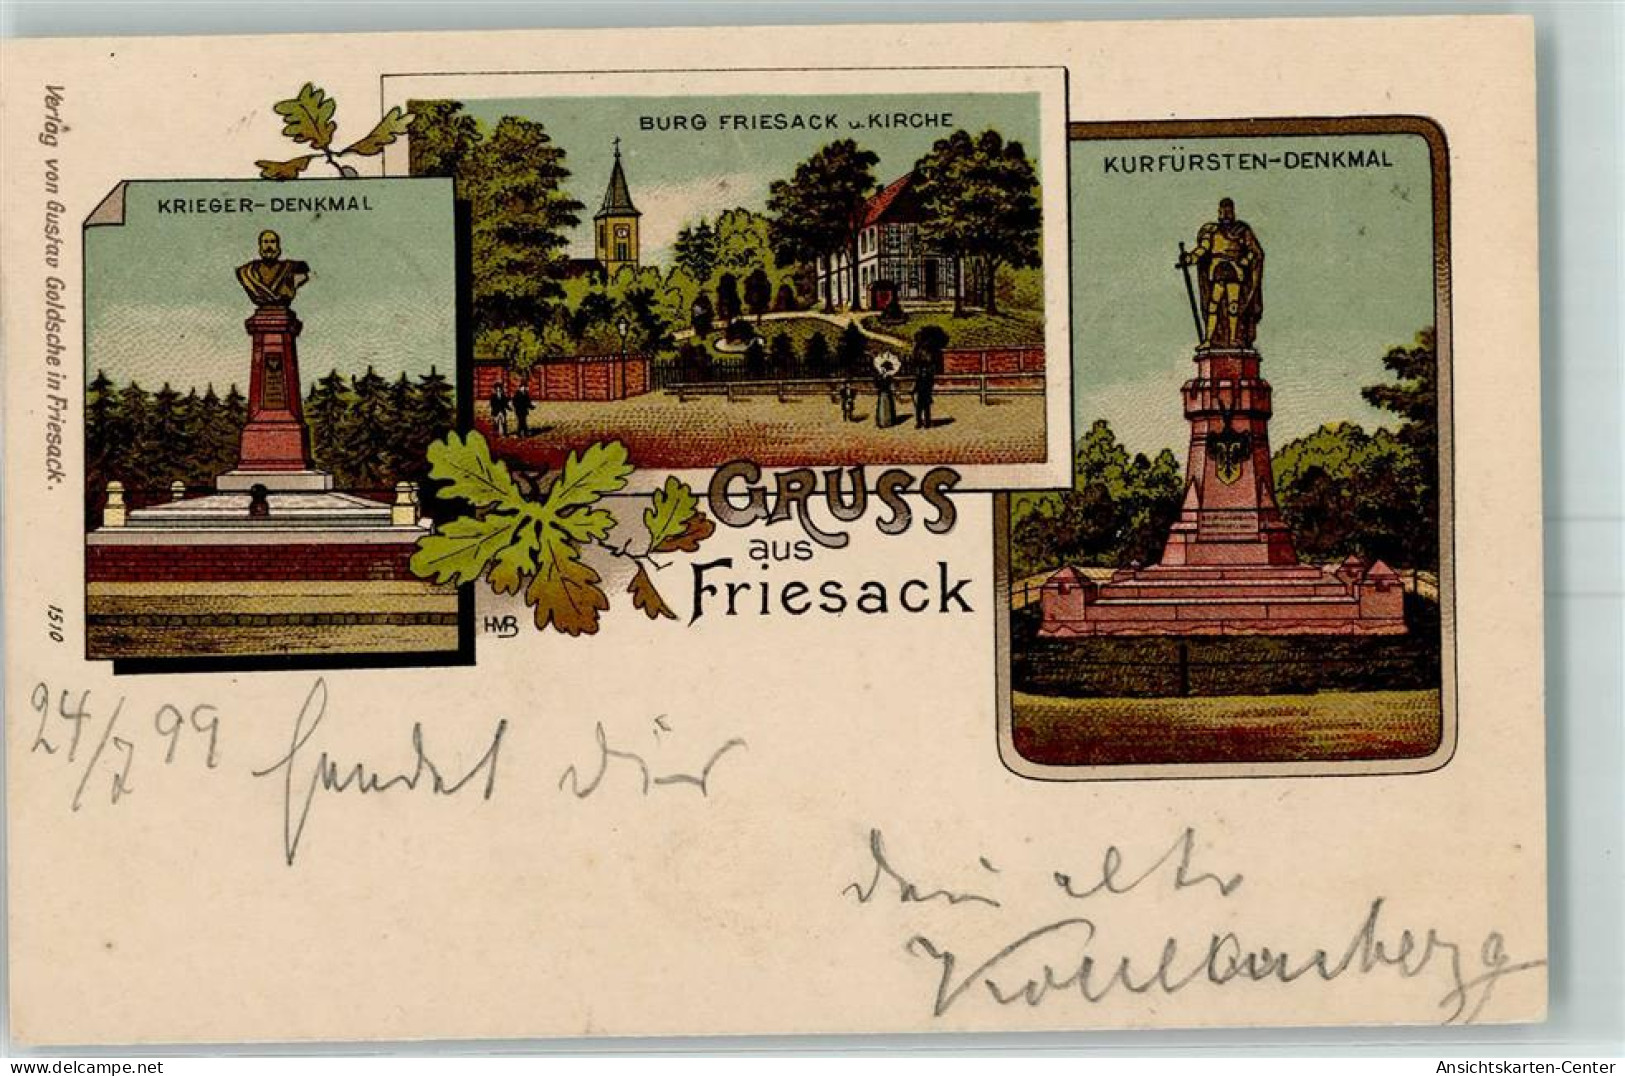 Verlag von Gustav Goldsche in Friesack.
1510
KRIEGER-DENKMAL
BURG FRIESACK u. KIRCHE
KURFÜRSTEN-DENKMAL
GRUSS
aus
Friesack
HMB
24/7 99 sendet Dir
dein alter
oldthing.de
Ansichtskarten-Center